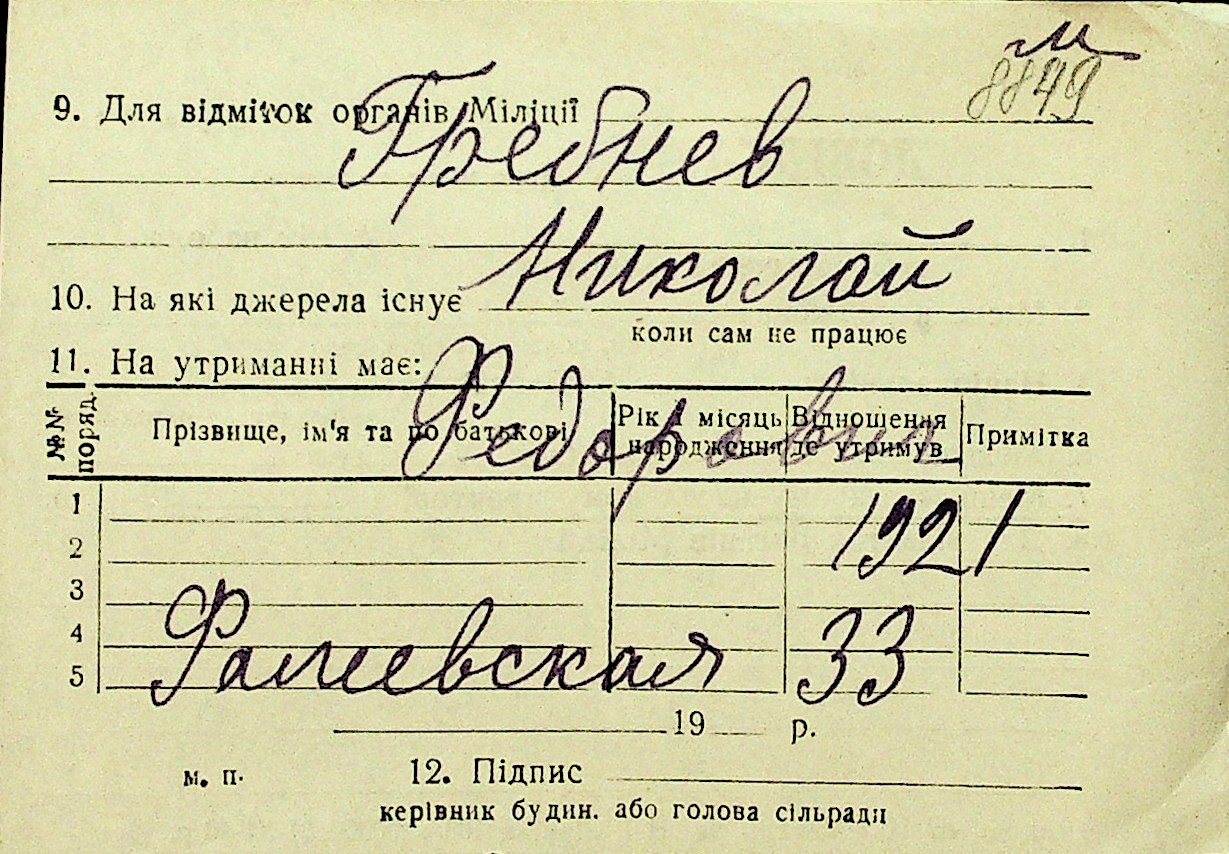 м
8849
9. Для відміток органів Міліції
Гребнев
Николай
10. На які джерела існує
коли сам не працює
11. На утриманні має:
Федорович
№№ поряд.
Прізвище, ім'я та по батькові
Рік і місяць народження
Відношення до утримув
Примітка
1
1921
2
3
4
Фалиевская 33
5
19 р.
м. п. 12. Підпис
керівник будин. або голова сільради